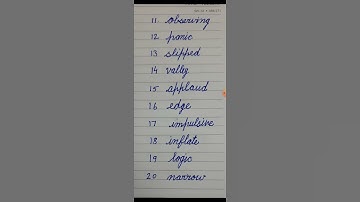 11 observing
12 panic
13 slipped
14 valley
15 applaud
16 edge
17 impulsive
18 inflate
19 logic
20 narrow